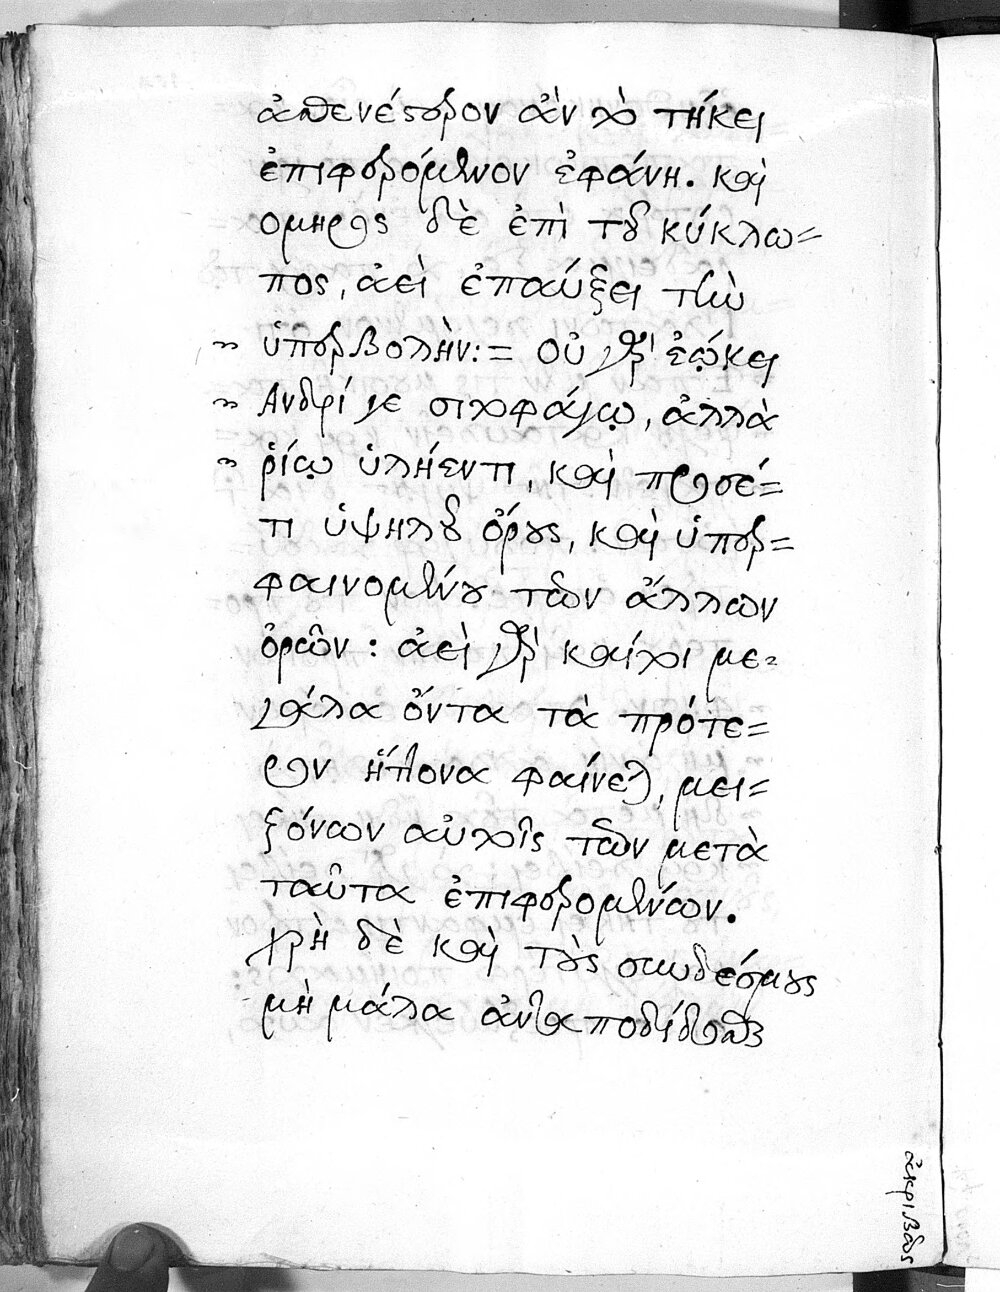 ἀσθενέστερον ἂν τὸ τήκει
ἐπιφερόμενον ἐφάνη. καὶ
ομηρος δὲ ἐπὶ τοῦ κύκλω=
πος, ἀεὶ ἐπαύξει τὴν
" ὑπερβολὴν:= οὐ γὰρ ἐῴκει
" Ανδρί γε σιτοφάγῳ, ἀλλὰ
" ῥίῳ ὑλήεντι, καὶ προσέ=
τι ὑψηλοῦ ὄρους, καὶ ὑπερ=
φαινομένου τῶν ἄλλων
ὀρῶν: ἀεὶ γὰρ καίτοι με=
γάλα ὄντα τὰ πρότε=
ρον ἥττονα φαίνεται, μει=
ζόνων αὐτοῖς τῶν μετὰ
ταῦτα ἐπιφερομένων.
χρὴ δὲ καὶ τοὺς συνδέσμους
μὴ μάλα ἀνταποδίδοσθαι
ἀκριβῶς